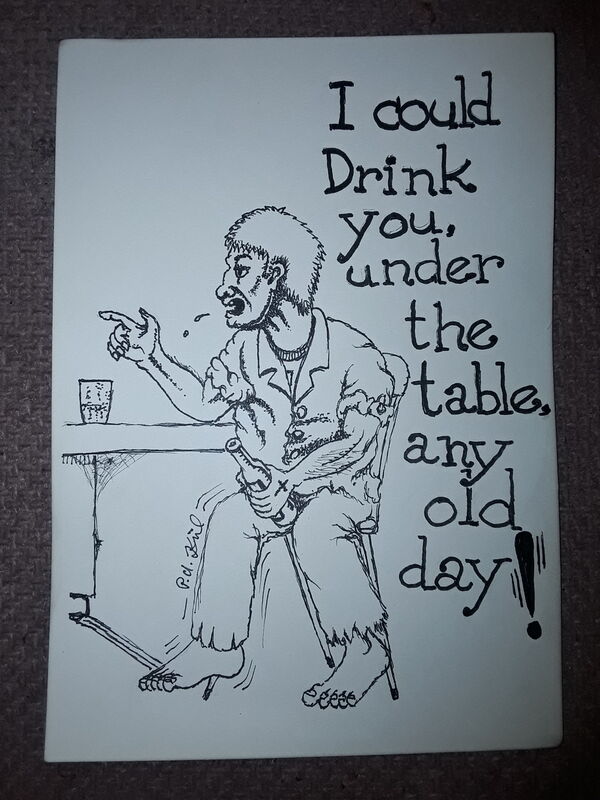 I could
Drink
you,
under
the
table,
any
old
day!